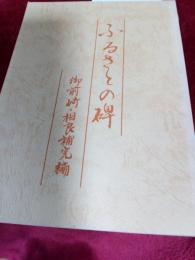 ふるさとの碑
御前崎・相良補完編